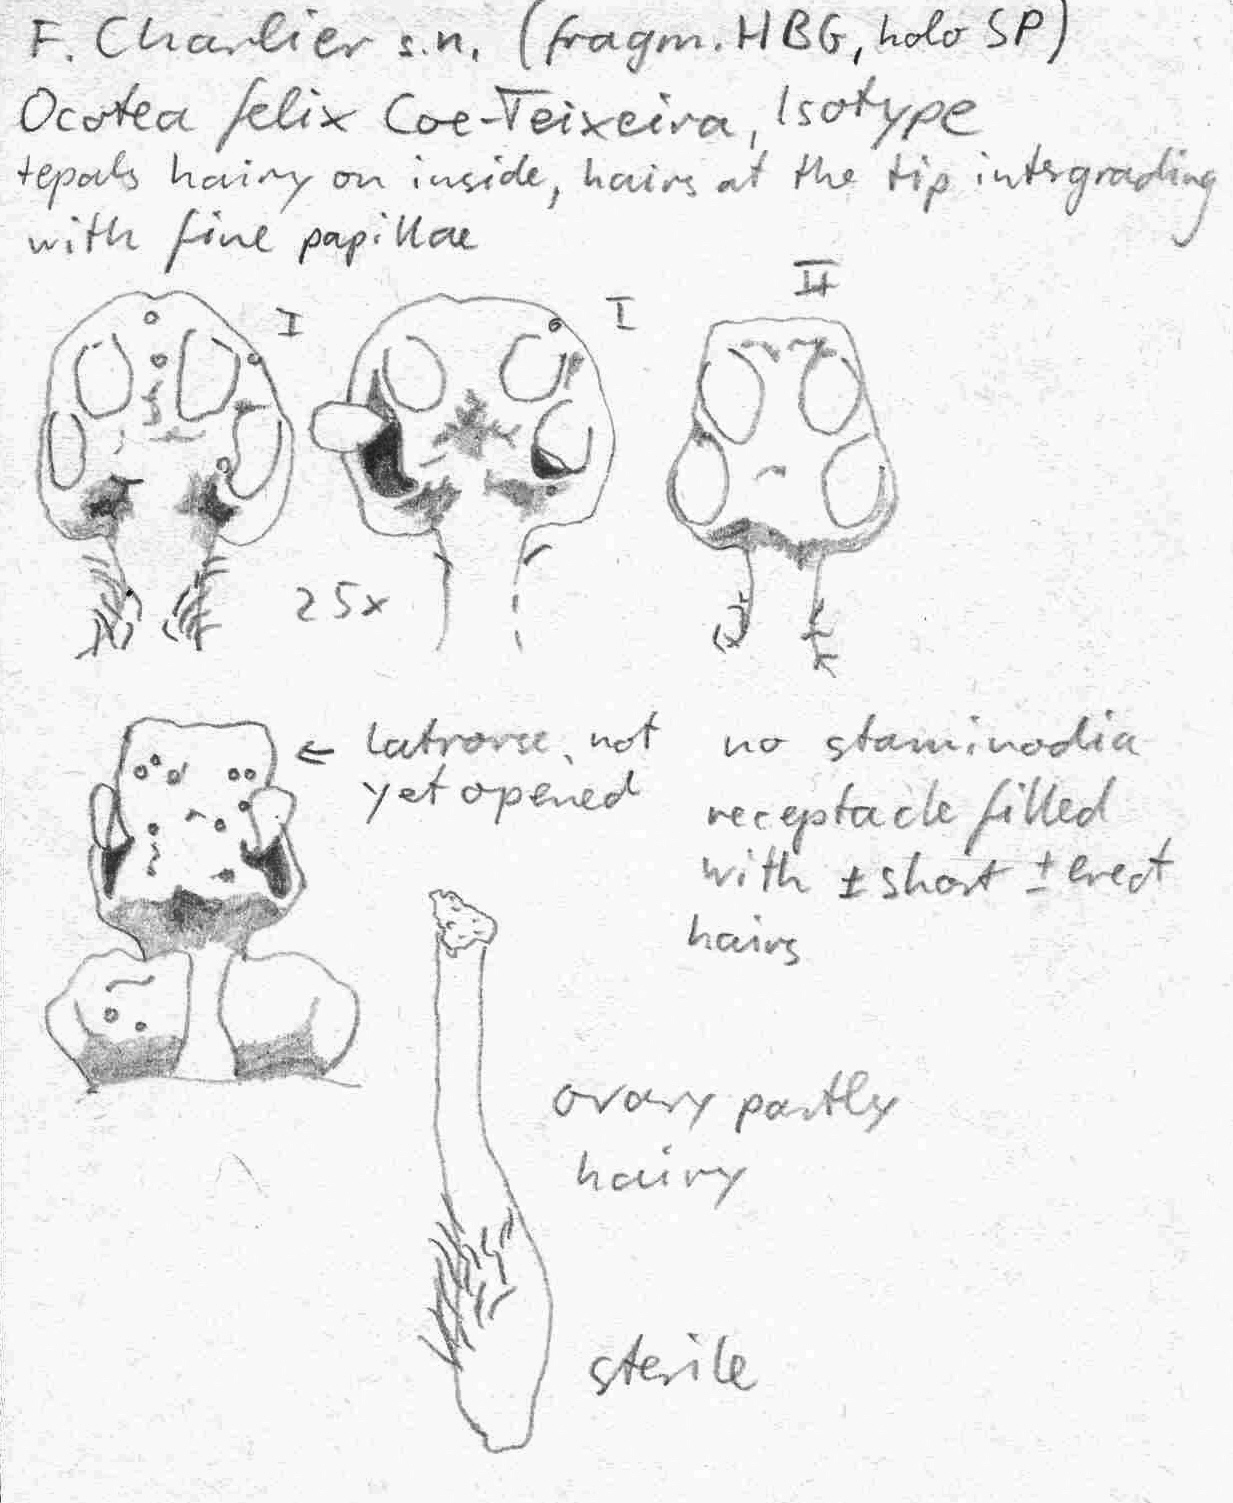 F. Charlier s.n. (fragm. HBG, holo SP)
Ocotea felix Coe-Teixeira, Isotype
tepals hairy on inside, hairs at the tip intergrading
with fine papillae
I
I
II
25x
← latrorse, not
yet opened
no staminodia
receptacle filled
with ± short ± erect
hairs
ovary partly
hairy
sterile